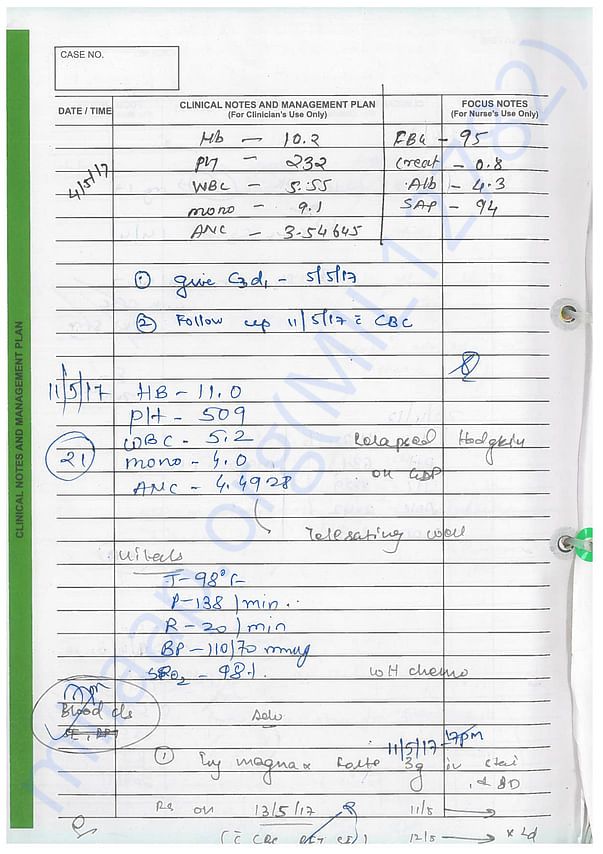 CASE NO.
DATE / TIME
CLINICAL NOTES AND MANAGEMENT PLAN
(For Clinician's Use Only)
FOCUS NOTES
(For Nurse's Use Only)
4/5/17
Hb - 10.2
FBG - 95
plt - 232
Creat - 0.8
WBC - 5.55
Alb - 4.3
mono - 9.1
SAP - 94
ANC - 3.54645
① give C3d1 - 5/5/17
② Follow up 11/5/17 c̄ CBC
11/5/17
HB - 11.0
plt - 509
WBC - 5.2
Relapsed Hodgkin
21
mono - 4.0
on GDP
ANC - 4.4928
Tolerating well
Vitals
T - 98°F
P - 138 / min
R - 20 / min
BP - 110/70 mmHg
SPO2 - 98%
Blood c/s
Adv
11/5/17 - 7pm
① Inj magnex forte 3g iv stat
, & BD
R/s on 13/5/17
11/5
12/5
x 2d
CLINICAL NOTES AND MANAGEMENT PLAN
milaap.org(MIL12782)